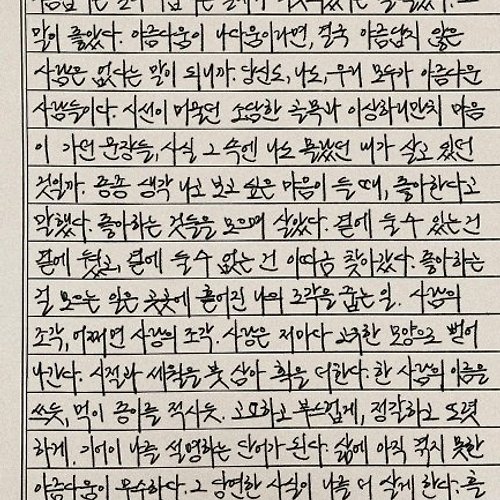 말이 좋았다. 아름다움이 나다움이라면, 결국 아름답지 않은
사람은 없다는 말이 되니까. 당신도, 나도, 우리 모두가 아름다운
사람들이다. 시선이 머물던 소담한 골목과 이상하리만치 마음
이 가던 문장들, 사실 그 속엔 나도 몰랐던 내가 살고 있던
것일까. 종종 생각 나고 보고 싶은 마음이 들 때, 좋아한다고
말했다. 좋아하는 것들을 모으며 살았다. 곁에 둘 수 있는 건
곁에 뒀고, 곁에 둘 수 없는 건 이따금 찾아갔다. 좋아하는
걸 모으는 일은 곳곳에 흩어진 나의 조각을 줍는 일. 사람의
조각, 어쩌면 사랑의 조각. 사랑은 저마다 고유한 모양으로 뻗어
나간다. 시절과 세월을 붓 삼아 획을 더한다. 한 사람의 이름을
쓰듯, 먹이 종이를 적시듯. 고요하고 부드럽게, 정갈하고 또렷
하게. 기어이 나를 설명하는 단어가 된다. 삶에 아직 겪지 못한
아름다움이 무수하다. 그 당연한 사실이 나를 더 살게 한다. 혹